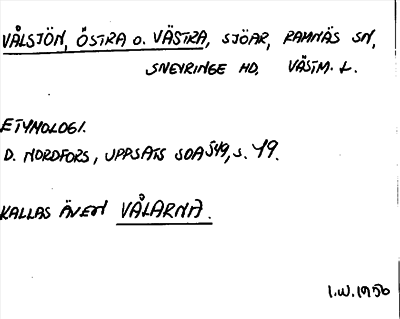 VÅLSJÖN, ÖSTRA O. VÄSTRA, SJÖAR, RAMNÄS SN,
SNEVRINGE HD. VÄSTM. L.
ETYMOLOGI.
D. NORDFORS, UPPSATS SOA 549, S. 49.
KALLAS ÄVEN VÅLARNA.
I.W. 1950